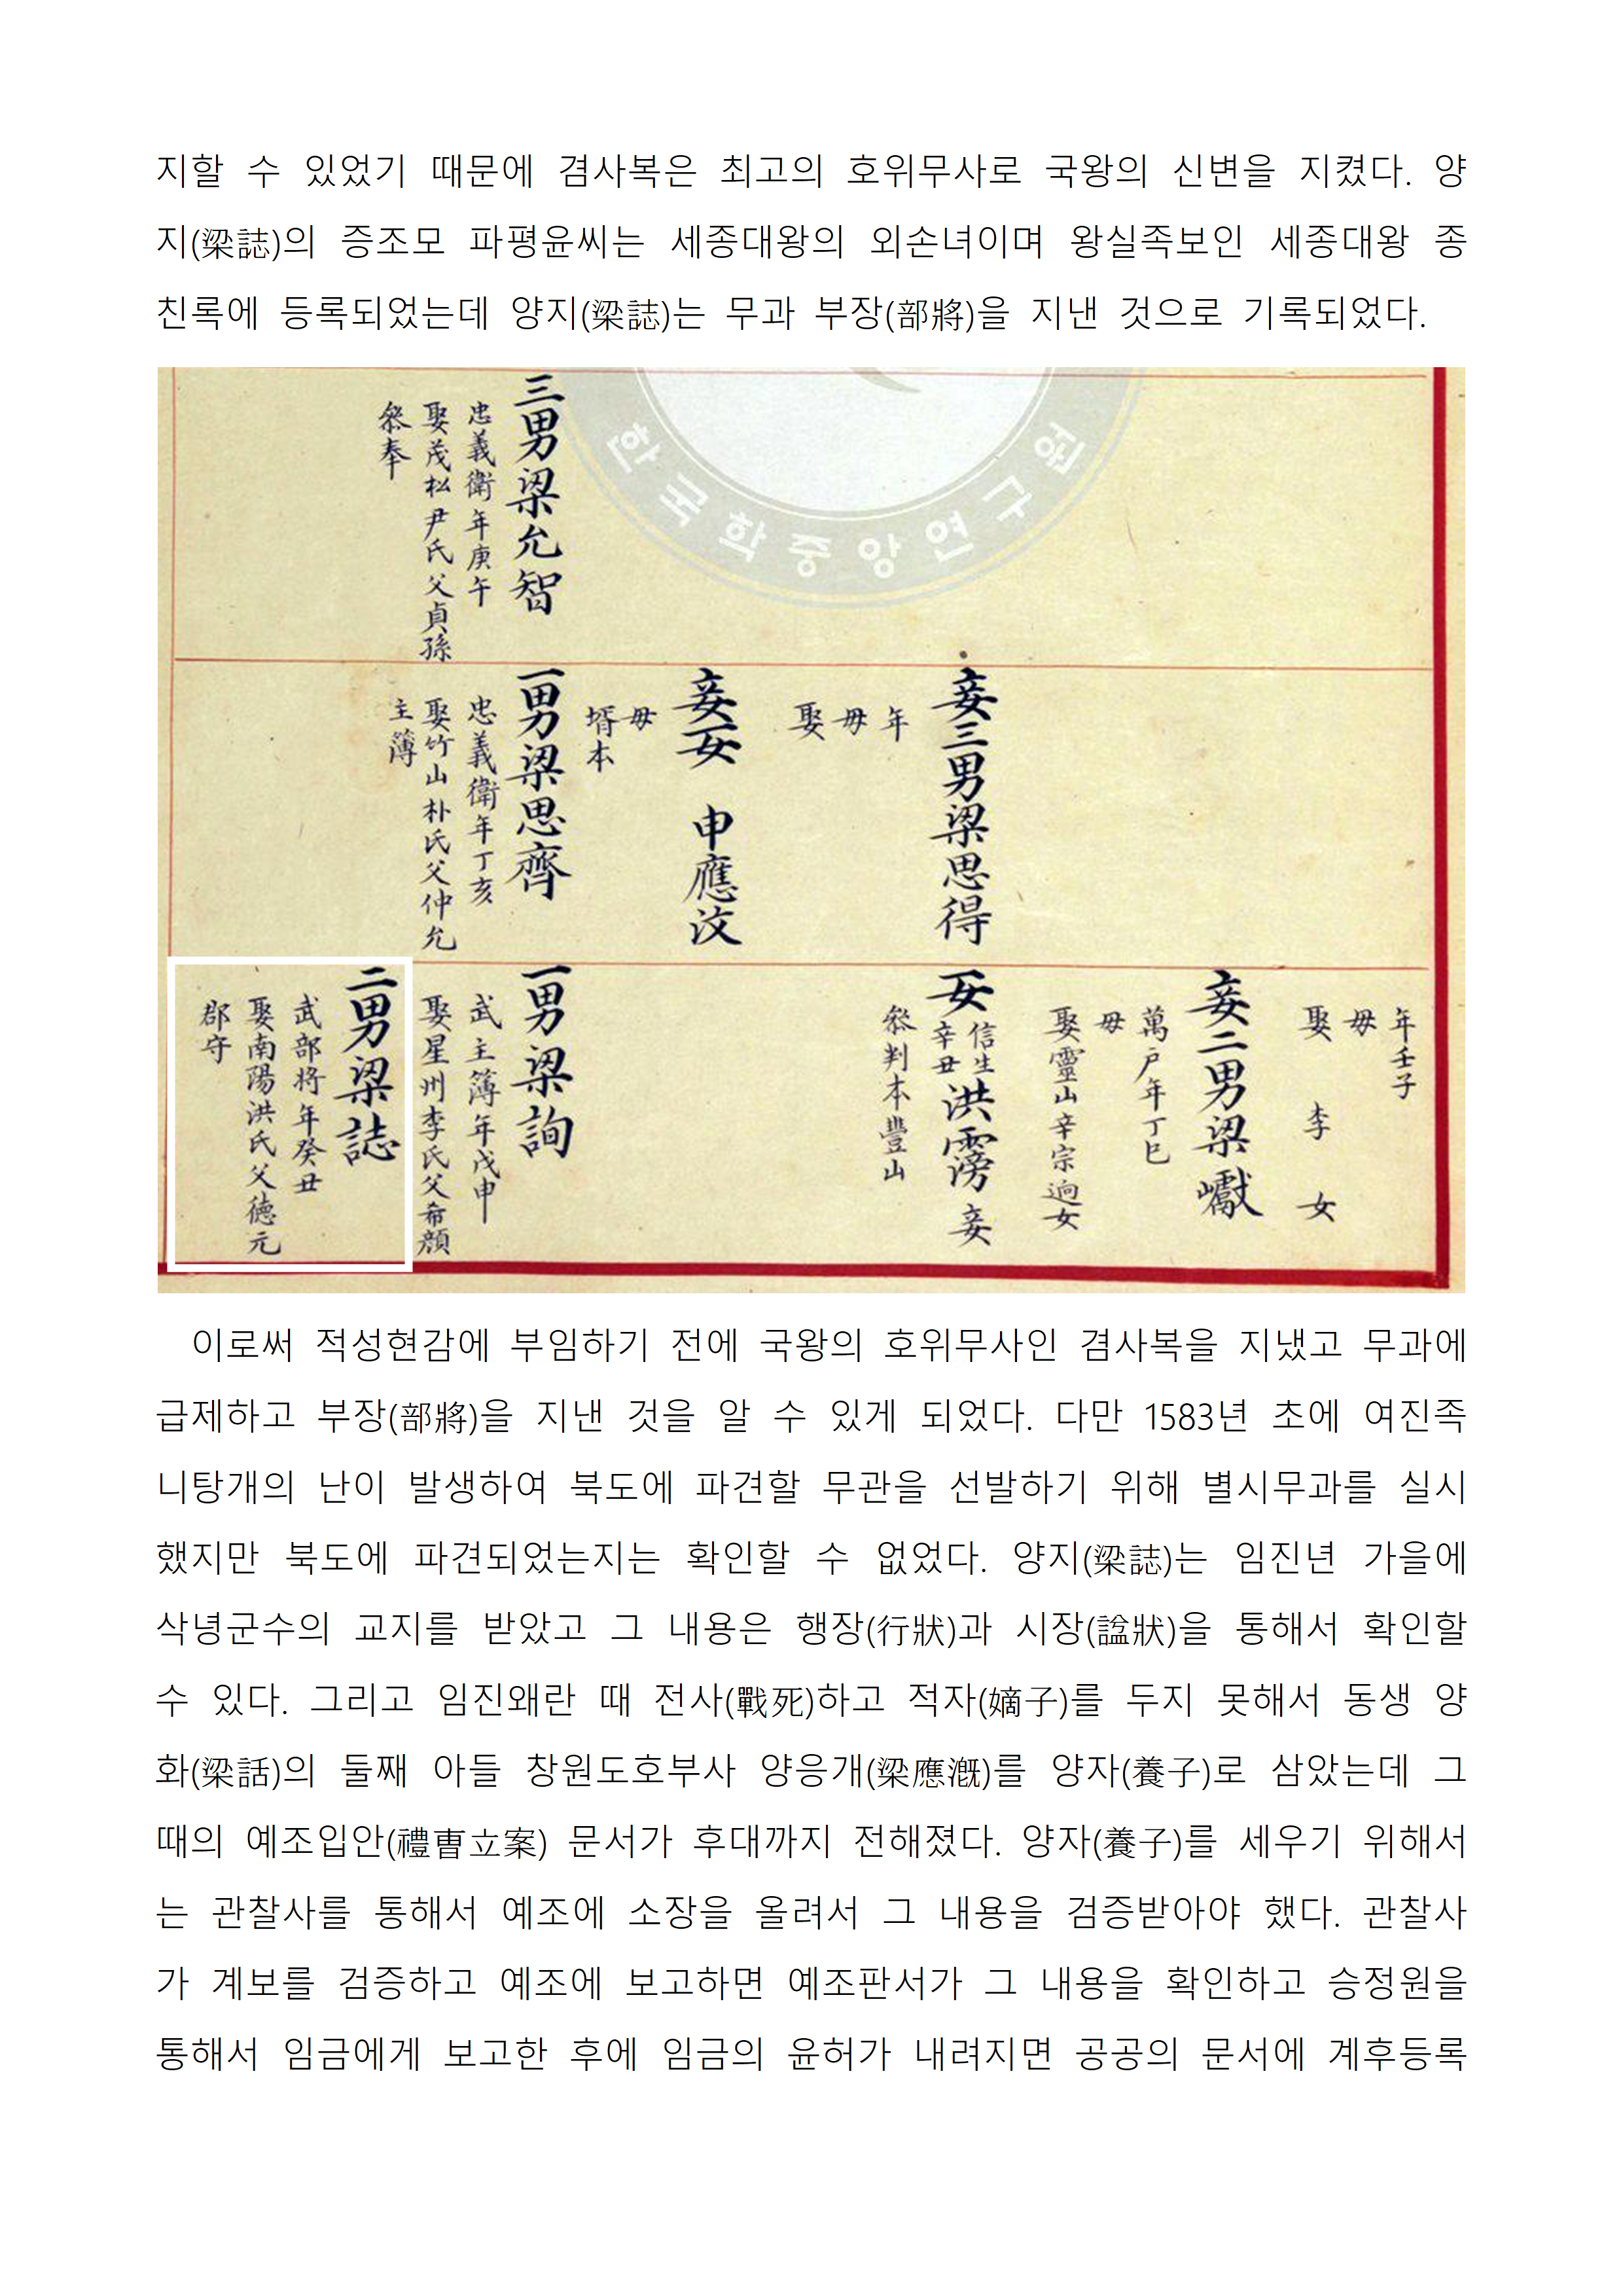 지할 수 있었기 때문에 겸사복은 최고의 호위무사로 국왕의 신변을 지켰다. 양
지(梁誌)의 증조모 파평윤씨는 세종대왕의 외손녀이며 왕실족보인 세종대왕 종
친록에 등록되었는데 양지(梁誌)는 무과 부장(部將)을 지낸 것으로 기록되었다.
한국학중앙연구원
三男梁允智
忠義衛年庚午
娶茂松尹氏父貞孫
叅奉
妾三男梁思得
年
母
娶
妾女 申應汶
母
壻本
一男梁思齊
忠義衛年丁亥
娶竹山朴氏父仲允
主簿
年壬子
母
娶 李 女
妾二男梁巘
萬戶年丁巳
母
娶靈山辛宗逈女
女 信生辛丑 洪霶 妾
叅判本豐山
一男梁詢
武主簿年戊申
娶星州李氏父希顔
二男梁誌
武部將年癸丑
娶南陽洪氏父德元
郡守
이로써 적성현감에 부임하기 전에 국왕의 호위무사인 겸사복을 지냈고 무과에
급제하고 부장(部將)을 지낸 것을 알 수 있게 되었다. 다만 1583년 초에 여진족
니탕개의 난이 발생하여 북도에 파견할 무관을 선발하기 위해 별시무과를 실시
했지만 북도에 파견되었는지는 확인할 수 없었다. 양지(梁誌)는 임진년 가을에
삭녕군수의 교지를 받았고 그 내용은 행장(行狀)과 시장(諡狀)을 통해서 확인할
수 있다. 그리고 임진왜란 때 전사(戰死)하고 적자(嫡子)를 두지 못해서 동생 양
화(梁話)의 둘째 아들 창원도호부사 양응개(梁應漑)를 양자(養子)로 삼았는데 그
때의 예조입안(禮曺立案) 문서가 후대까지 전해졌다. 양자(養子)를 세우기 위해서
는 관찰사를 통해서 예조에 소장을 올려서 그 내용을 검증받아야 했다. 관찰사
가 계보를 검증하고 예조에 보고하면 예조판서가 그 내용을 확인하고 승정원을
통해서 임금에게 보고한 후에 임금의 윤허가 내려지면 공공의 문서에 계후등록